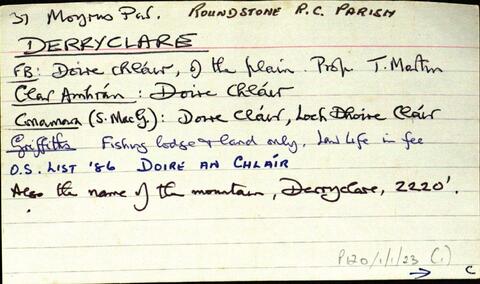 31 Moyrus Par. ROUNDSTONE R.C. PARISH
DERRYCLARE
FB: Doire chláir, of the plain. Prop T. Martin
Clar Amhrán: Doire Chláir
Conamara (S. Mac G.): Doire Cláir, Loch Dhoire Cláir
Griffiths Fishing lodge & land only, Law Life in fee
O.S. LIST '86 DOIRE AN CHLÁIR
Also the name of the mountain, Derryclare, 2220'.
P120/1/1/23 (1)
→ C